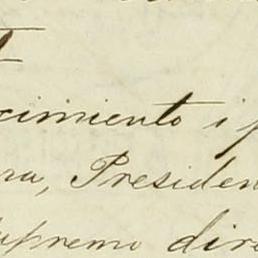 cimiento i p
ra, Presiden
Supremo dire